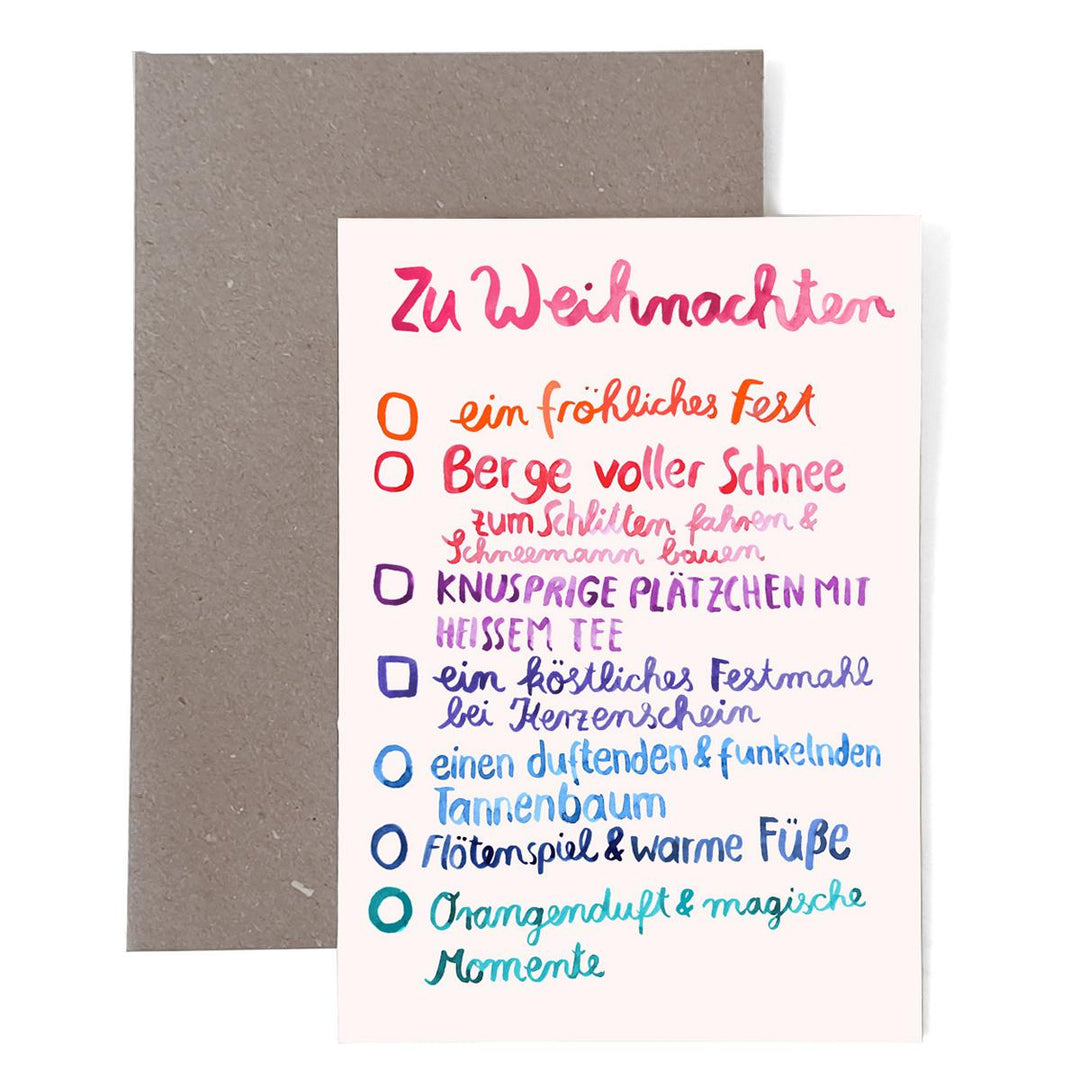 Zu Weihnachten
ein fröhliches Fest
Berge voller Schnee
zum Schlitten fahren &
Schneemann bauen
KNUSPRIGE PLÄTZCHEN MIT
HEISSEM TEE
ein köstliches Festmahl
bei Kerzenschein
einen duftenden & funkelnden
Tannenbaum
Flötenspiel & warme Füße
Orangenduft & magische
Momente